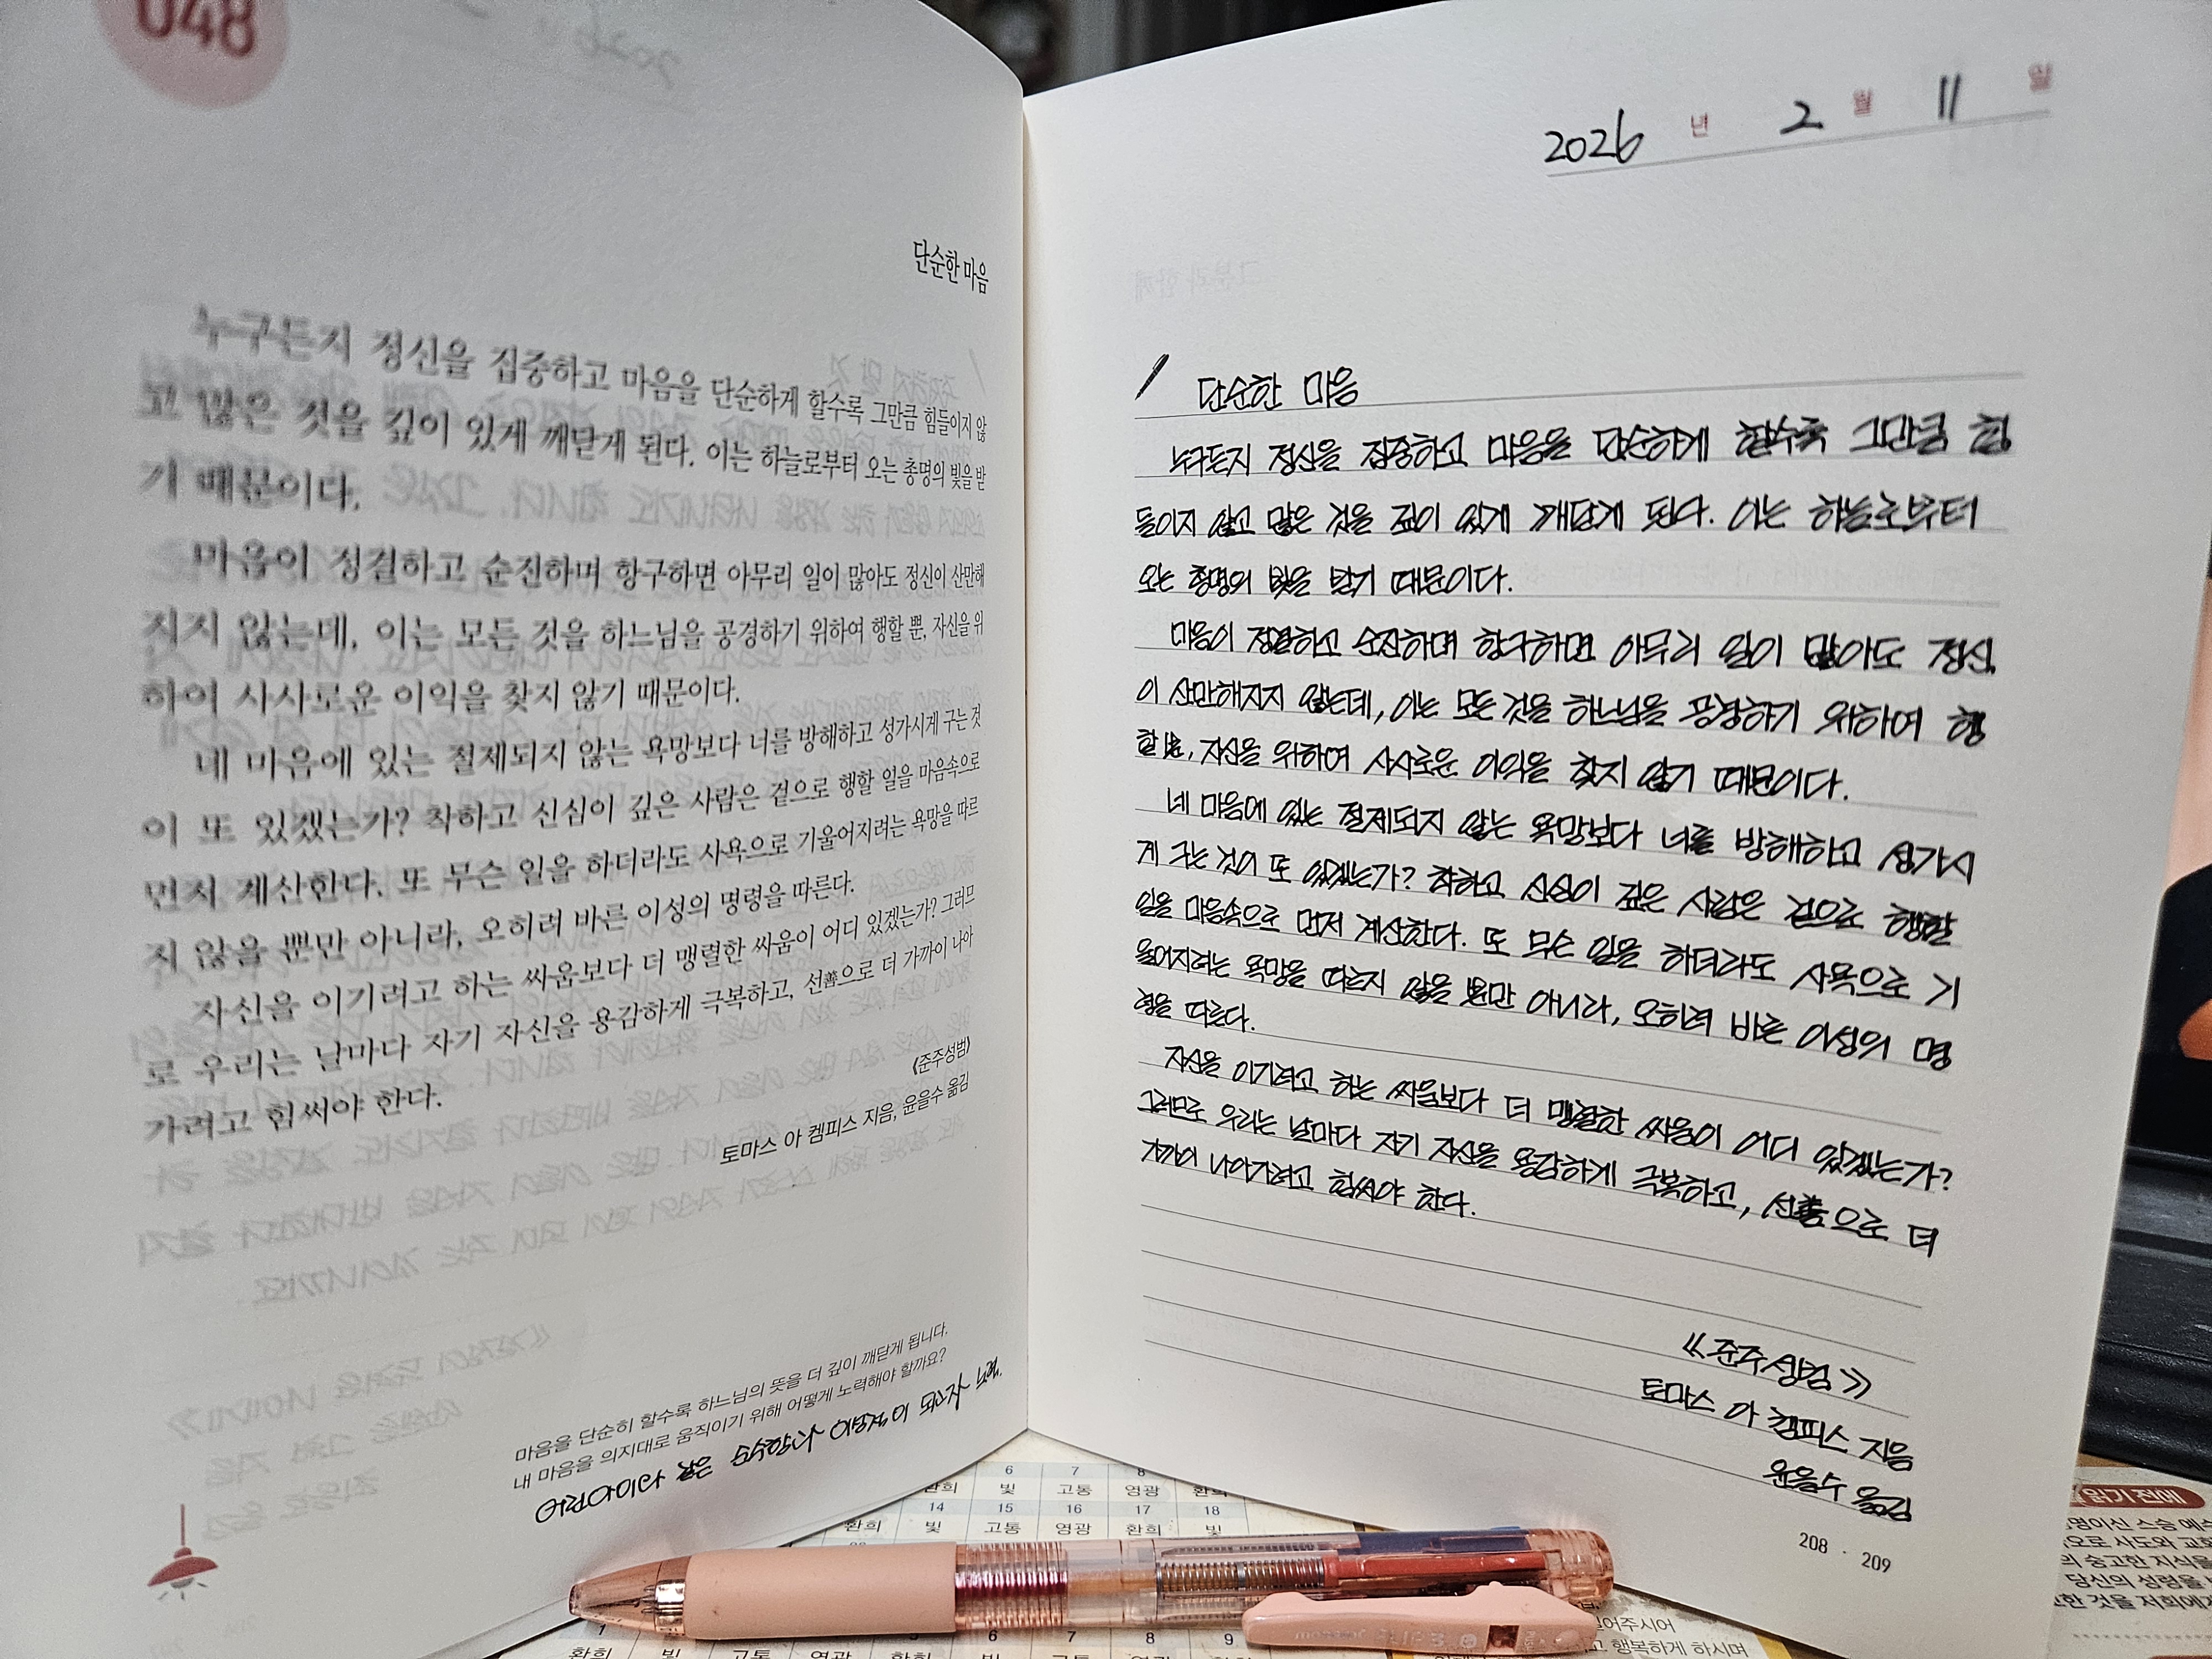 048
단순한 마음
누구든지 정신을 집중하고 마음을 단순하게 할수록 그만큼 힘들이지 않
고 많은 것을 깊이 있게 깨닫게 된다. 이는 하늘로부터 오는 총명의 빛을 받
기 때문이다.
마음이 정결하고 순진하며 항구하면 아무리 일이 많아도 정신이 산만해
지지 않는데, 이는 모든 것을 하느님을 공경하기 위하여 행할 뿐, 자신을 위
하여 사사로운 이익을 찾지 않기 때문이다.
네 마음에 있는 절제되지 않는 욕망보다 너를 방해하고 성가시게 구는 것
이 또 있겠는가? 착하고 신심이 깊은 사람은 겉으로 행할 일을 마음속으로
먼저 계산한다. 또 무슨 일을 하더라도 사욕으로 기울어지려는 욕망을 따르
지 않을 뿐만 아니라, 오히려 바른 이성의 명령을 따른다.
자신을 이기려고 하는 싸움보다 더 맹렬한 싸움이 어디 있겠는가? 그러므
로 우리는 날마다 자기 자신을 용감하게 극복하고, 선善으로 더 가까이 나아
가려고 힘써야 한다.
《준주성범》
토마스 아 켐피스 지음, 윤을수 옮김
마음을 단순히 할수록 하느님의 뜻을 더 깊이 깨닫게 됩니다.
내 마음을 의지대로 움직이기 위해 어떻게 노력해야 할까요?
2026 년 2 월 11 일
단순한 마음
누구든지 정신을 집중하고 마음을 단순하게 할수록 그만큼 힘
들이지 않고 많은 것을 깊이 있게 깨닫게 된다. 이는 하늘로부터
오는 총명의 빛을 받기 때문이다.
마음이 정결하고 순진하며 항구하면 아무리 일이 많아도 정신
이 산만해지지 않는데, 이는 모든 것을 하느님을 공경하기 위하여 행
할 뿐, 자신을 위하여 사사로운 이익을 찾지 않기 때문이다.
네 마음에 있는 절제되지 않는 욕망보다 너를 방해하고 성가시
게 구는 것이 또 있겠는가? 착하고 신심이 깊은 사람은 겉으로 행할
일을 마음속으로 먼저 계산한다. 또 무슨 일을 하더라도 사욕으로 기
울어지려는 욕망을 따르지 않을 뿐만 아니라, 오히려 바른 이성의 명
령을 따른다.
자신을 이기려고 하는 싸움보다 더 맹렬한 싸움이 어디 있겠는가?
그러므로 우리는 날마다 자기 자신을 용감하게 극복하고, 선善으로 더
가까이 나아가려고 힘써야 한다.
《준주성범》
토마스 아 켐피스 지음
윤을수 옮김
208 · 209
6 7 8
빛 고통 영광 환희
14 15 16 17 18
환희 빛 고통 영광 환희 빛
1 6 7 8 9
환희 빛 고통 영광 환희 빛 고통 영광 환희
읽기 전에